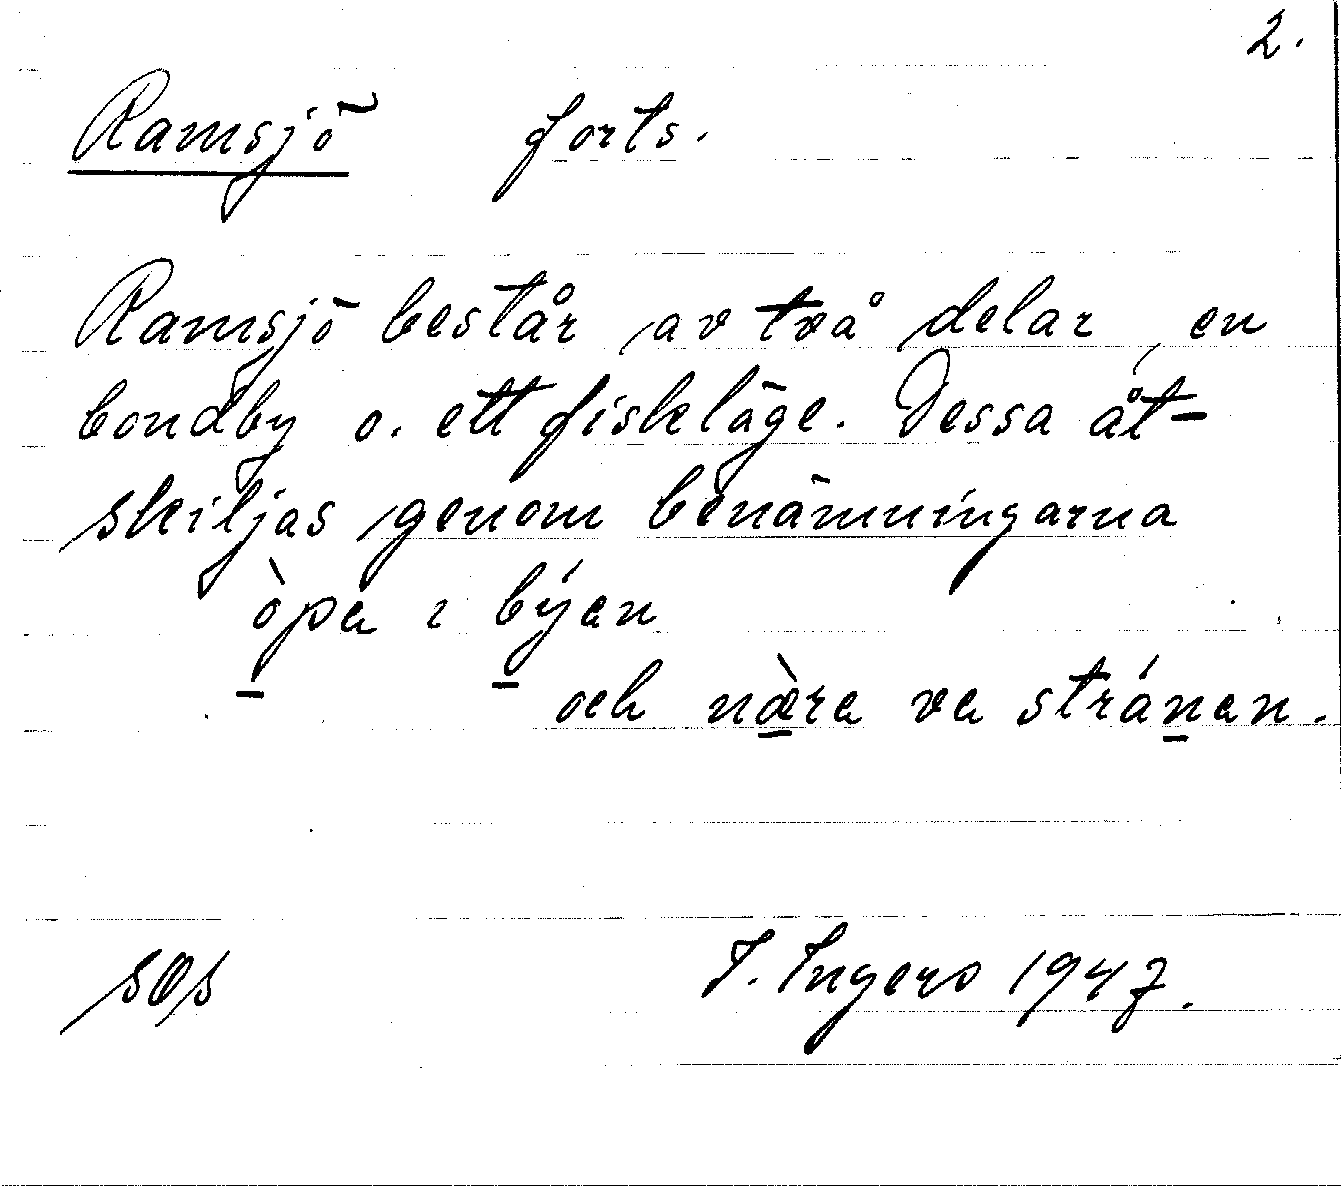 2.
Ramsjö forts.
Ramsjö består av två delar, en
bondby o. ett fiskeläge. Dessa åt-
skiljas genom benämningarna
òpa i býen
och næ̀ra va stránen.
SOS I. Ingers 1947.